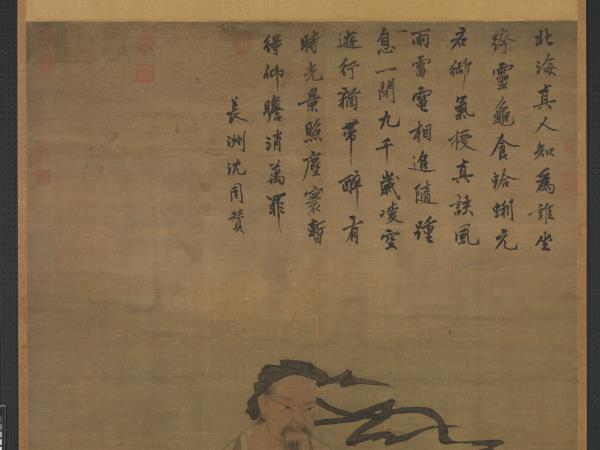 北海真人知為誰坐
跨靈龜食蛤蜊元
君御氣授真訣風
雨雷電相追隨踵
息一閉九千歲凌空
遊行猶帶醉有
時光景照塵寰暫
得仰瞻消萬罪
長洲沈周贊